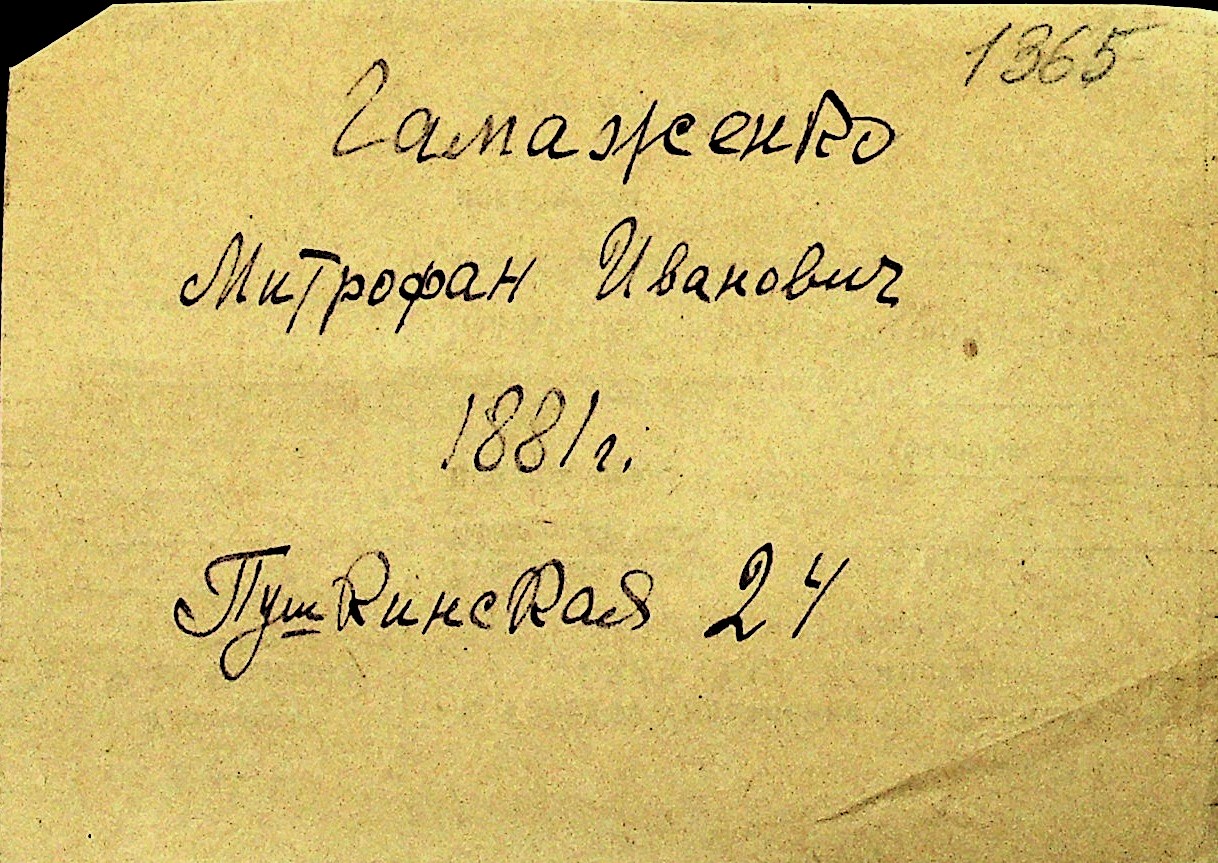 1365
Гамаженко
Митрофан Иванович
1881 г.
Пушкинская 24